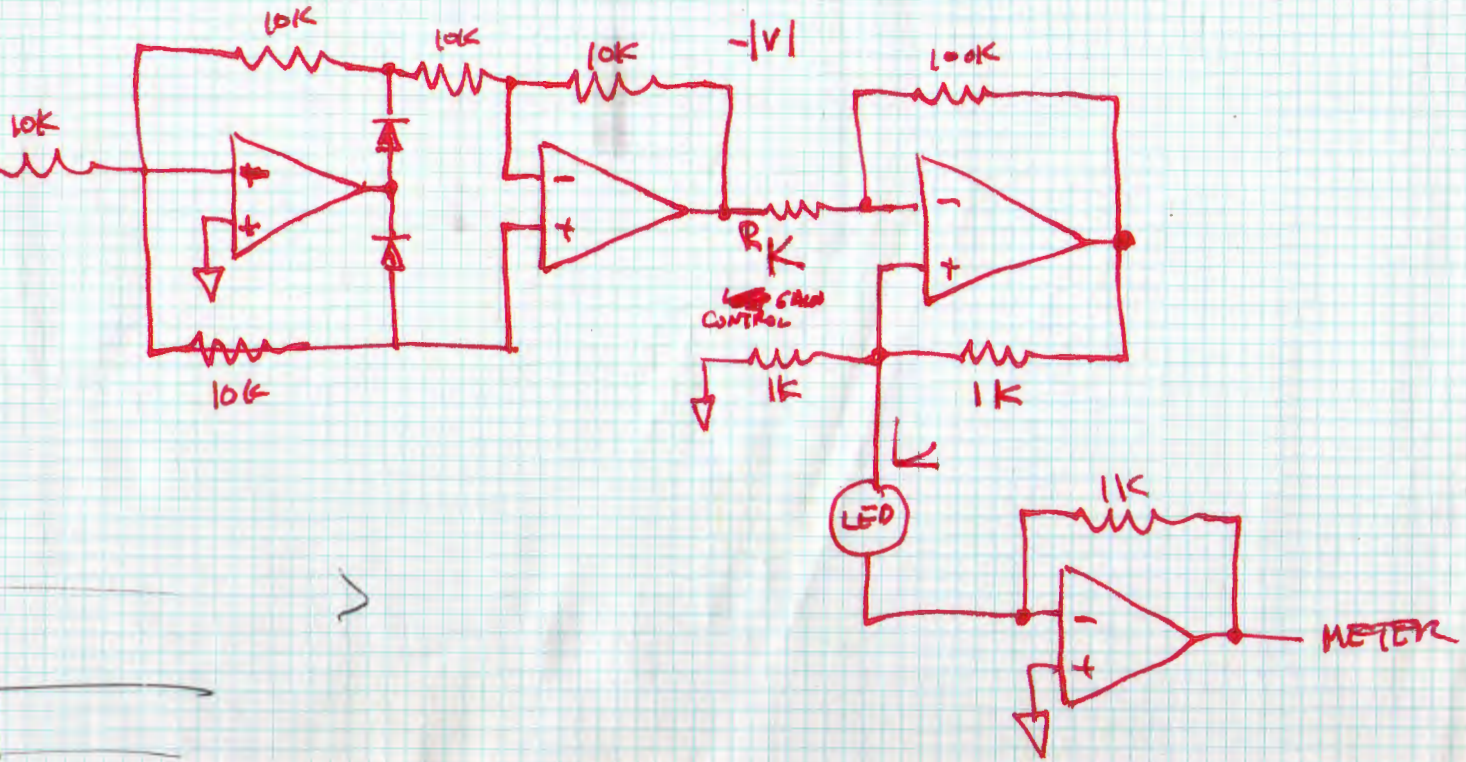 10K
10K
10K
-|V|
100K
10K
+
-
-
+
+
+
R
K
GAIN
CONTROL
10K
1K
1K
LED
1K
-
+
METER